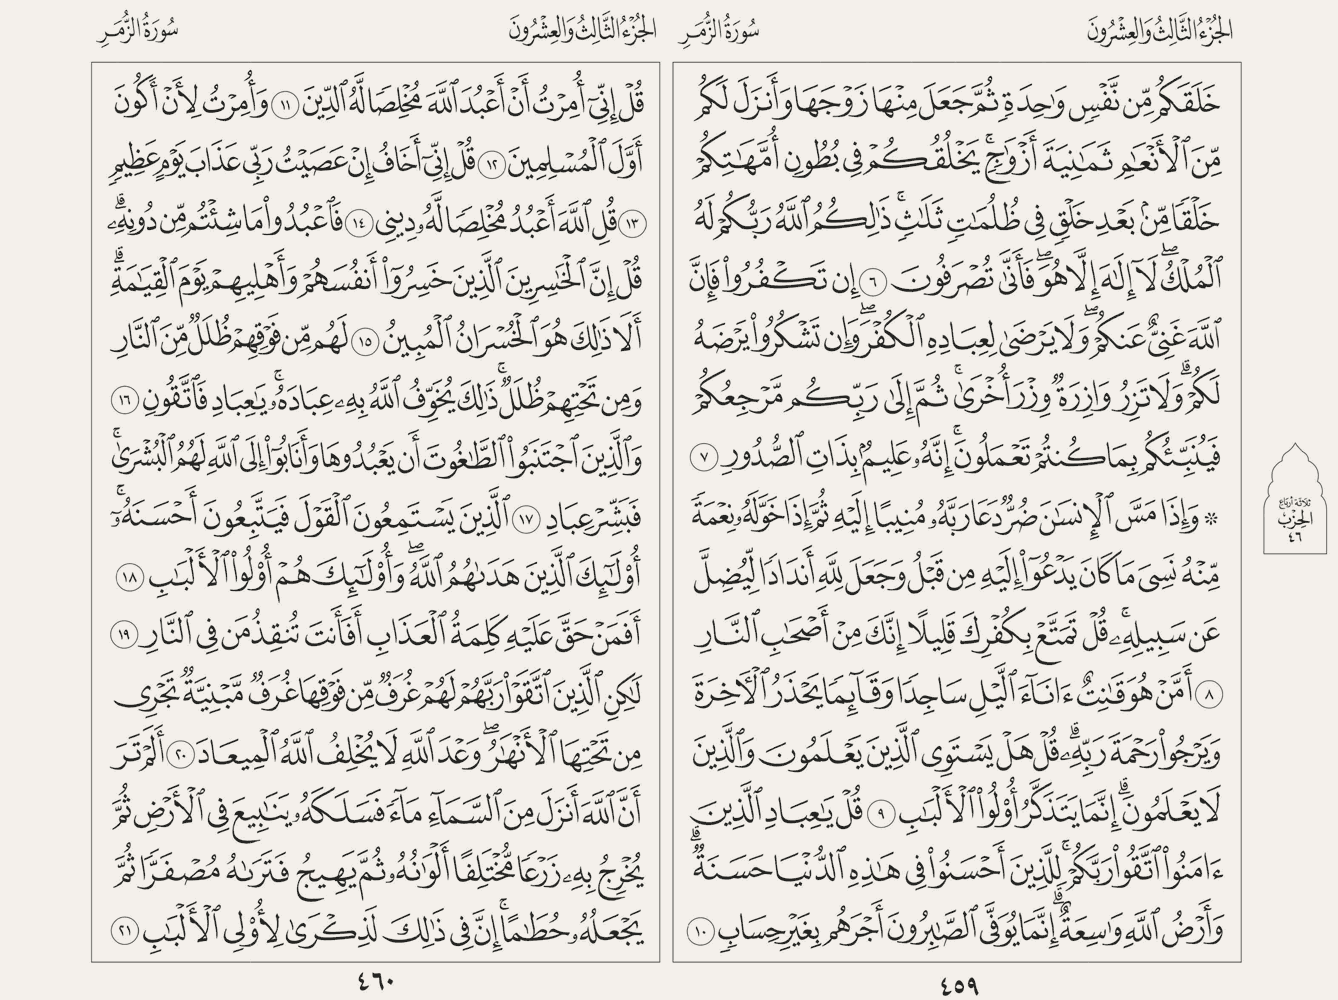 الجُزْءُ الثَّالِثُ وَالعِشْرُونَ
سُورَةُ الزُّمَرِ
خَلَقَكُم مِّن نَّفْسٖ وَٰحِدَةٖ ثُمَّ جَعَلَ مِنْهَا زَوْجَهَا وَأَنزَلَ لَكُم
مِّنَ ٱلْأَنْعَٰمِ ثَمَٰنِيَةَ أَزْوَٰجٖۚ يَخْلُقُكُمْ فِي بُطُونِ أُمَّهَٰتِكُمْ
خَلْقٗا مِّنۢ بَعْدِ خَلْقٖ فِي ظُلُمَٰتٖ ثَلَٰثٖۚ ذَٰلِكُمُ ٱللَّهُ رَبُّكُمْ لَهُ
ٱلْمُلْكُۖ لَآ إِلَٰهَ إِلَّا هُوَۖ فَأَنَّىٰ تُصْرَفُونَ ٦ إِن تَكْفُرُوا۟ فَإِنَّ
ٱللَّهَ غَنِيٌّ عَنكُمْۖ وَلَا يَرْضَىٰ لِعِبَادِهِ ٱلْكُفْرَۖ وَإِن تَشْكُرُوا۟ يَرْضَهُ
لَكُمْۗ وَلَا تَزِرُ وَازِرَةٞ وِزْرَ أُخْرَىٰۚ ثُمَّ إِلَىٰ رَبِّكُم مَّرْجِعُكُمْ
فَيُنَبِّئُكُم بِمَا كُنتُمْ تَعْمَلُونَۚ إِنَّهُۥ عَلِيمُۢ بِذَاتِ ٱلصُّدُورِ ٧
۞ وَإِذَا مَسَّ ٱلْإِنسَٰنَ ضُرّٞ دَعَا رَبَّهُۥ مُنِيبًا إِلَيْهِ ثُمَّ إِذَا خَوَّلَهُۥ نِعْمَةٗ
مِّنْهُ نَسِيَ مَا كَانَ يَدْعُوٓا۟ إِلَيْهِ مِن قَبْلُ وَجَعَلَ لِلَّهِ أَندَادٗا لِّيُضِلَّ
عَن سَبِيلِهِۦۚ قُلْ تَمَتَّعْ بِكُفْرِكَ قَلِيلًا إِنَّكَ مِنْ أَصْحَٰبِ ٱلنَّارِ
٨ أَمَّنْ هُوَ قَٰنِتٌ ءَانَآءَ ٱلَّيْلِ سَاجِدٗا وَقَآئِمٗا يَحْذَرُ ٱلْءَاخِرَةَ
وَيَرْجُوا۟ رَحْمَةَ رَبِّهِۦۗ قُلْ هَلْ يَسْتَوِي ٱلَّذِينَ يَعْلَمُونَ وَٱلَّذِينَ
لَا يَعْلَمُونَۗ إِنَّمَا يَتَذَكَّرُ أُو۟لُوا۟ ٱلْأَلْبَٰبِ ٩ قُلْ يَٰعِبَادِ ٱلَّذِينَ
ءَامَنُوا۟ ٱتَّقُوا۟ رَبَّكُمْۚ لِلَّذِينَ أَحْسَنُوا۟ فِي هَٰذِهِ ٱلدُّنْيَا حَسَنَةٞۗ
وَأَرْضُ ٱللَّهِ وَٰسِعَةٌۗ إِنَّمَا يُوَفَّى ٱلصَّٰبِرُونَ أَجْرَهُم بِغَيْرِ حِسَابٖ ١٠
٤٥٩
ثلاثة أرباع
الحِزْب
٤٦
الجُزْءُ الثَّالِثُ وَالعِشْرُونَ
سُورَةُ الزُّمَرِ
قُلْ إِنِّيٓ أُمِرْتُ أَنْ أَعْبُدَ ٱللَّهَ مُخْلِصٗا لَّهُ ٱلدِّينَ ١١ وَأُمِرْتُ لِأَنْ أَكُونَ
أَوَّلَ ٱلْمُسْلِمِينَ ١٢ قُلْ إِنِّيٓ أَخَافُ إِنْ عَصَيْتُ رَبِّي عَذَابَ يَوْمٍ عَظِيمٖ
١٣ قُلِ ٱللَّهَ أَعْبُدُ مُخْلِصٗا لَّهُۥ دِينِي ١٤ فَٱعْبُدُوا۟ مَا شِئْتُم مِّن دُونِهِۦۗ
قُلْ إِنَّ ٱلْخَٰسِرِينَ ٱلَّذِينَ خَسِرُوٓا۟ أَنفُسَهُمْ وَأَهْلِيهِمْ يَوْمَ ٱلْقِيَٰمَةِۗ
أَلَا ذَٰلِكَ هُوَ ٱلْخُسْرَانُ ٱلْمُبِينُ ١٥ لَهُم مِّن فَوْقِهِمْ ظُلَلٞ مِّنَ ٱلنَّارِ
وَمِن تَحْتِهِمْ ظُلَلٞۚ ذَٰلِكَ يُخَوِّفُ ٱللَّهُ بِهِۦ عِبَادَهُۥۚ يَٰعِبَادِ فَٱتَّقُونِ ١٦
وَٱلَّذِينَ ٱجْتَنَبُوا۟ ٱلطَّٰغُوتَ أَن يَعْبُدُوهَا وَأَنَابُوٓا۟ إِلَى ٱللَّهِ لَهُمُ ٱلْبُشْرَىٰۚ
فَبَشِّرْ عِبَادِ ١٧ ٱلَّذِينَ يَسْتَمِعُونَ ٱلْقَوْلَ فَيَتَّبِعُونَ أَحْسَنَهُۥٓۚ
أُو۟لَٰٓئِكَ ٱلَّذِينَ هَدَىٰهُمُ ٱللَّهُۖ وَأُو۟لَٰٓئِكَ هُمْ أُو۟لُوا۟ ٱلْأَلْبَٰبِ ١٨
أَفَمَنْ حَقَّ عَلَيْهِ كَلِمَةُ ٱلْعَذَابِ أَفَأَنتَ تُنقِذُ مَن فِي ٱلنَّارِ ١٩
لَٰكِنِ ٱلَّذِينَ ٱتَّقَوْا۟ رَبَّهُمْ لَهُمْ غُرَفٞ مِّن فَوْقِهَا غُرَفٞ مَّبْنِيَّةٞ تَجْرِي
مِن تَحْتِهَا ٱلْأَنْهَٰرُۖ وَعْدَ ٱللَّهِ لَا يُخْلِفُ ٱللَّهُ ٱلْمِيعَادَ ٢٠ أَلَمْ تَرَ
أَنَّ ٱللَّهَ أَنزَلَ مِنَ ٱلسَّمَآءِ مَآءٗ فَسَلَكَهُۥ يَنَٰبِيعَ فِي ٱلْأَرْضِ ثُمَّ
يُخْرِجُ بِهِۦ زَرْعٗا مُّخْتَلِفًا أَلْوَٰنُهُۥ ثُمَّ يَهِيجُ فَتَرَىٰهُ مُصْفَرّٗا ثُمَّ
يَجْعَلُهُۥ حُطَٰمًاۚ إِنَّ فِي ذَٰلِكَ لَذِكْرَىٰ لِأُو۟لِي ٱلْأَلْبَٰبِ ٢١
٤٦٠